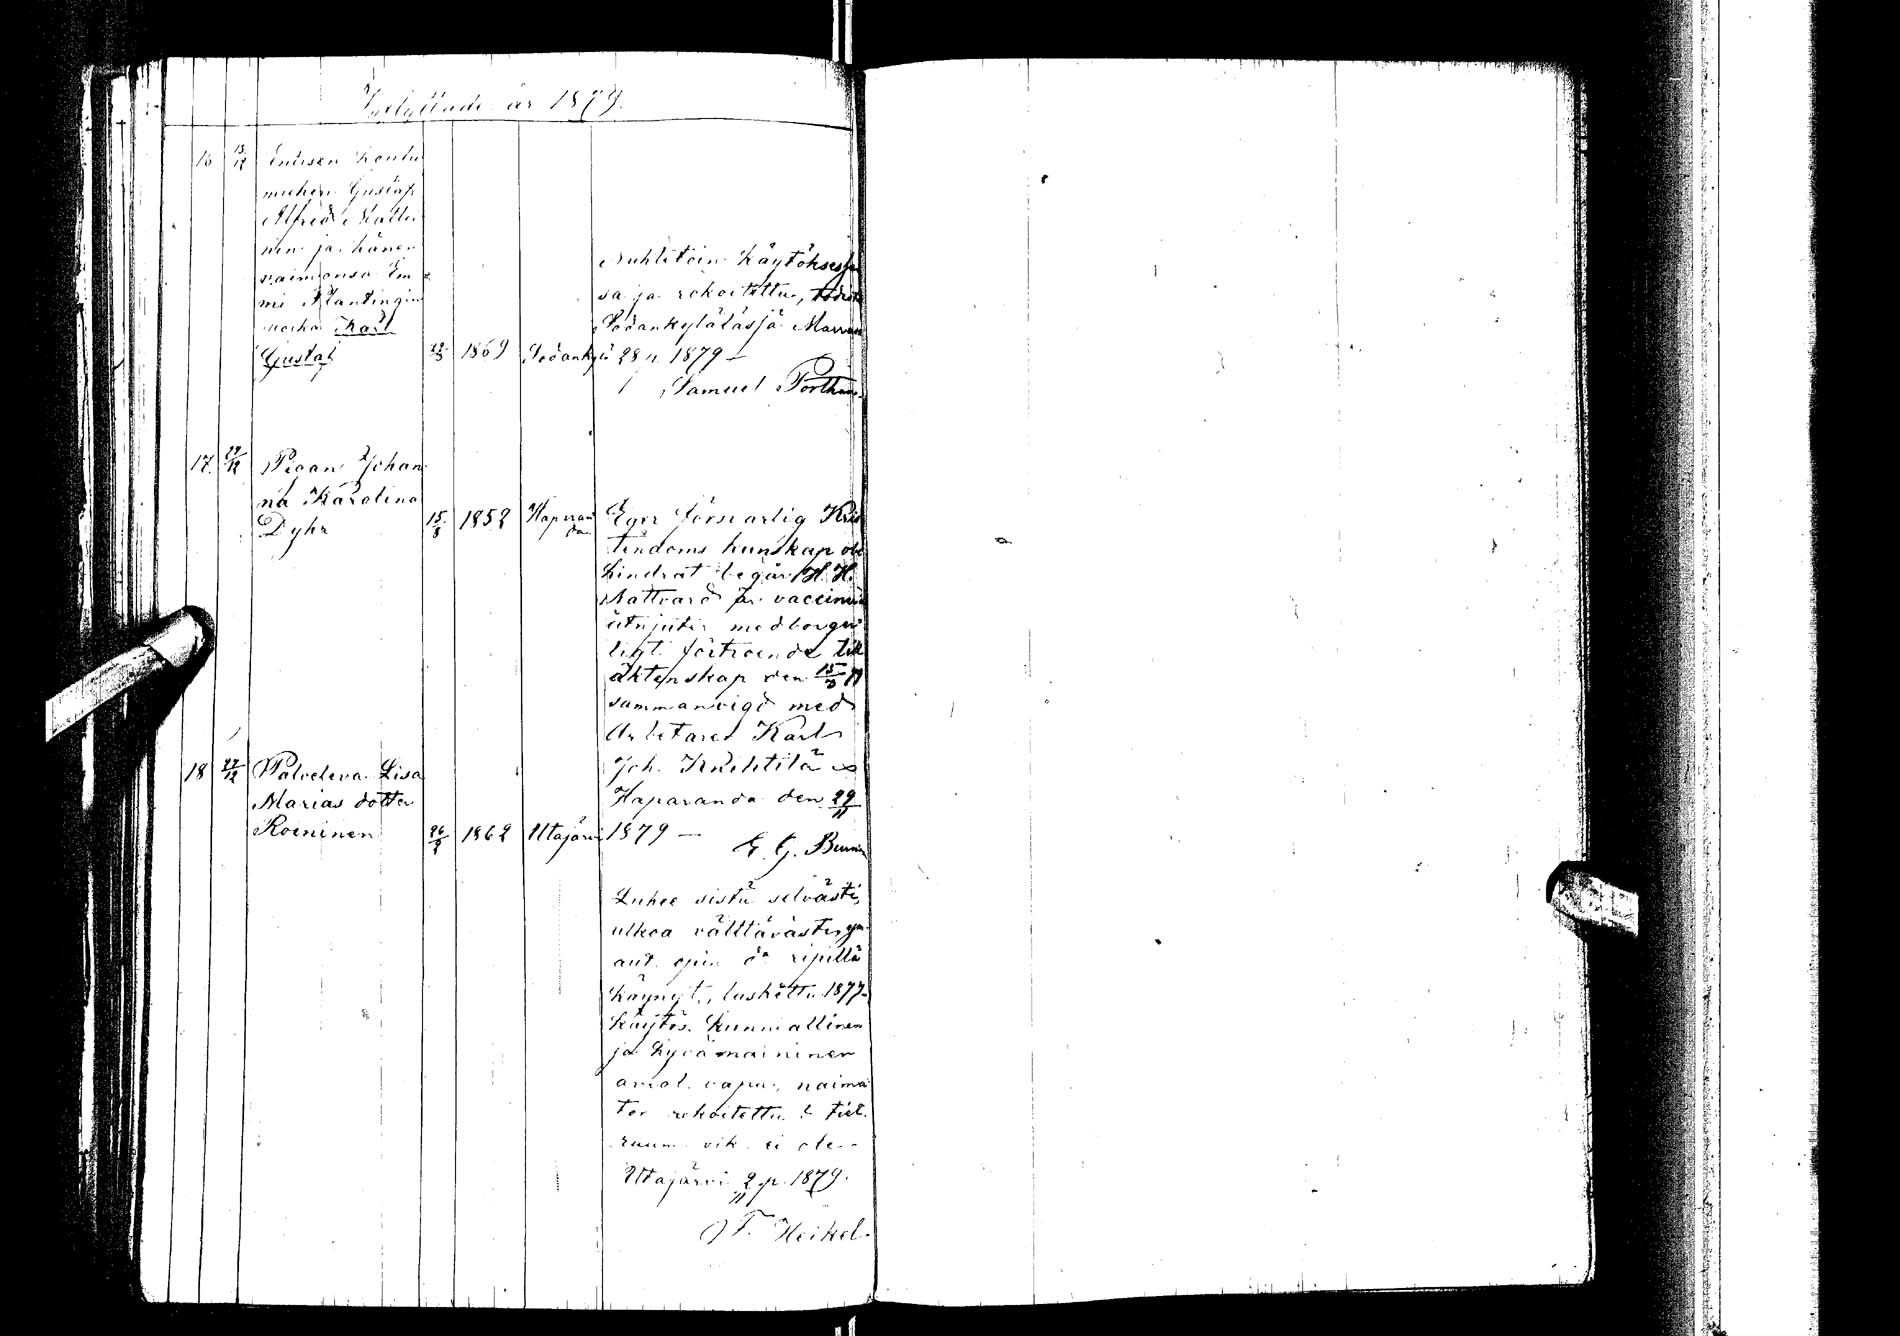 Inflyttade år 1879.
16 15/12 Entisen Koulu
miehen Gustaf
Alfred
nen ja hänen
vaimonsa Em
mi Plantingin
poika Karl
Gustaf 1869 Sodankylä
Nuhtetoin Käytökses
sa ja rokoitettu, todista
Sodankylässä
28 p. 1879 –
Samuel Porthan
17. 12 Pigan Johan
na Karolina
Dyhr 15/8 1852 Haparan
da
Eger försvarlig Kris
tendoms kunskap obe
hindrat begår H. H.
Nattvard är vaccinerad
åtnjuter medborger
ligt förtroende till
äktenskap den 15/3 79
sammanvigd med
Arbetaren Karl
Joh.
Haparanda den 29/11
1879 –
E. G.
18 27/12 Palveleva Lisa
Marias dotter
Roininen 1862 Utajärvi
Lukee sistä selvästi,
ulkoa välttävästi,
aut. opin ripillä
käynyt, laskettu 1877
Käytös kunniallinen
ja hyvämaininen
aviol. vapa, naima
ton rokoitettu
ruum. vik. ei ole –
Utajärvi 2/11 p. 1879.
F. Heikel.